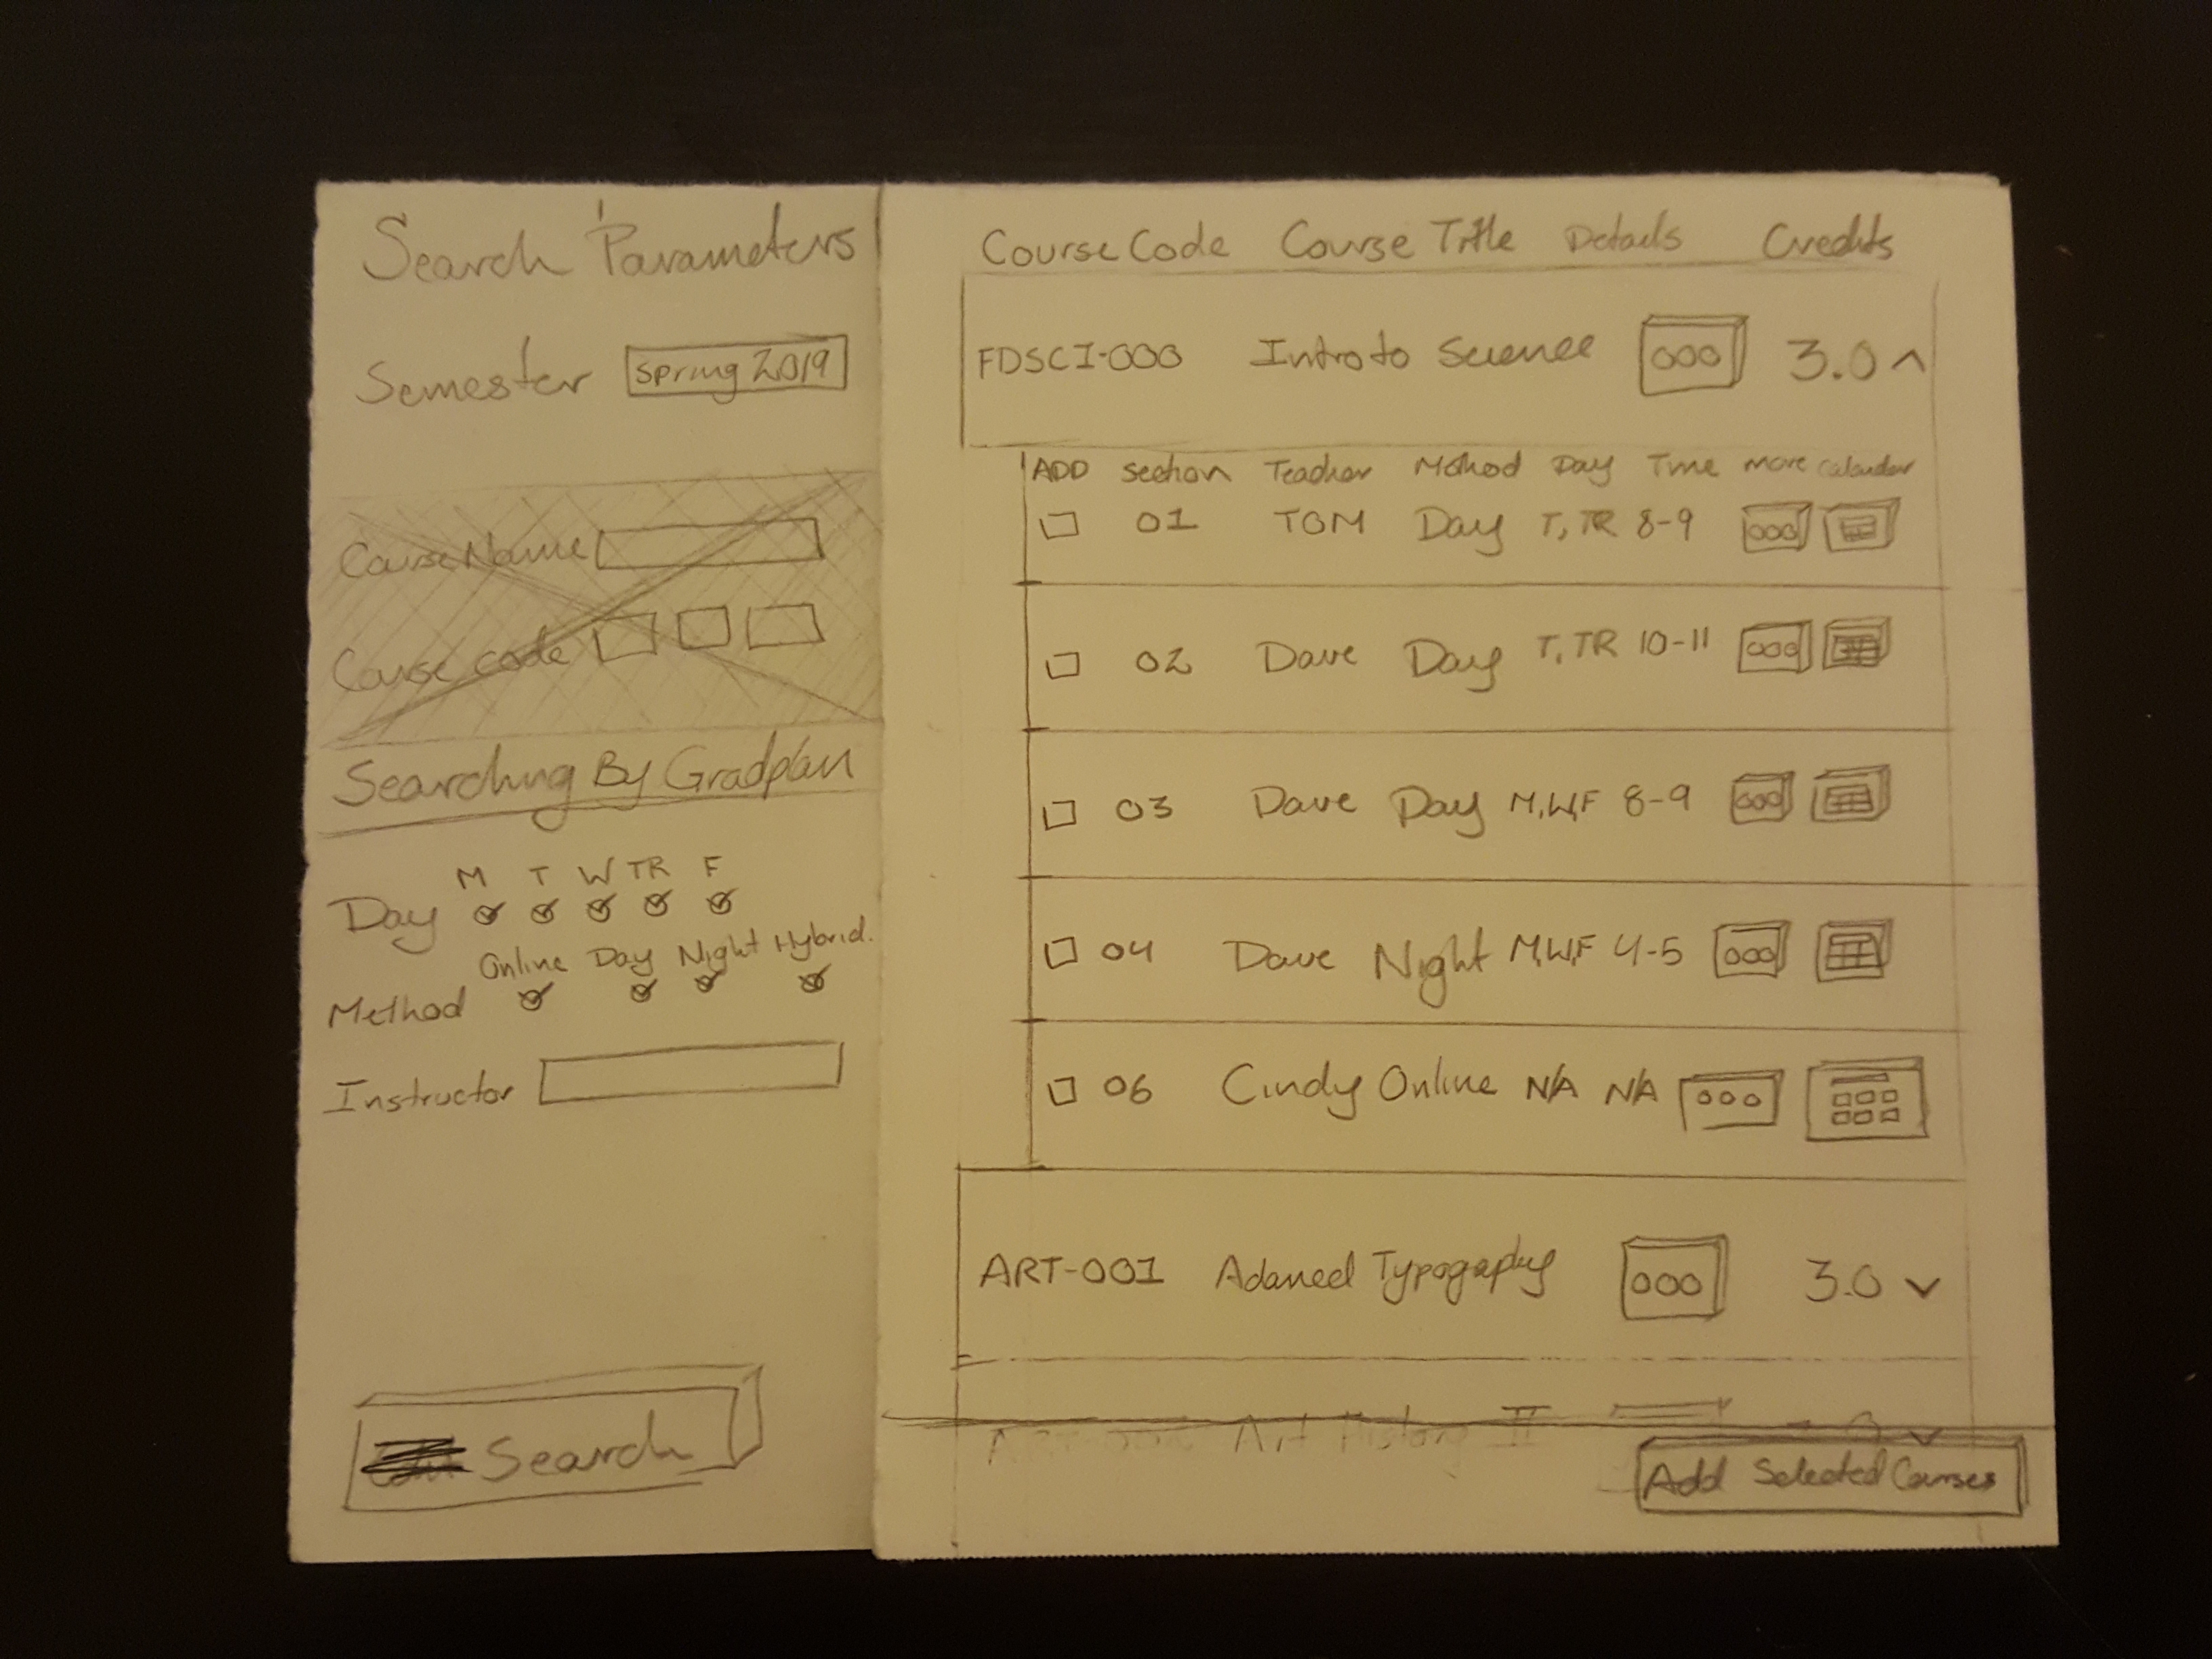 Search Parameters
Semester Spring 2019
Course Name
Course code
Searching By Gradplan
M T W TR F
Day
Online Day Night Hybrid.
Method
Instructor
Search
Course Code Course Title Details Credits
FDSCI-000 Intro to Science 000 3.0
ADD section Teacher Method Day Time more calander
01 TOM Day T, TR 8-9 000
02 Dave Day T, TR 10-11 000
03 Dave Day M,W,F 8-9 000
04 Dave Night M,W,F 4-5 000
06 Cindy Online N/A N/A 000
ART-001 Adanced Typogaphy 000 3.0
Art History II
Add Selected Courses